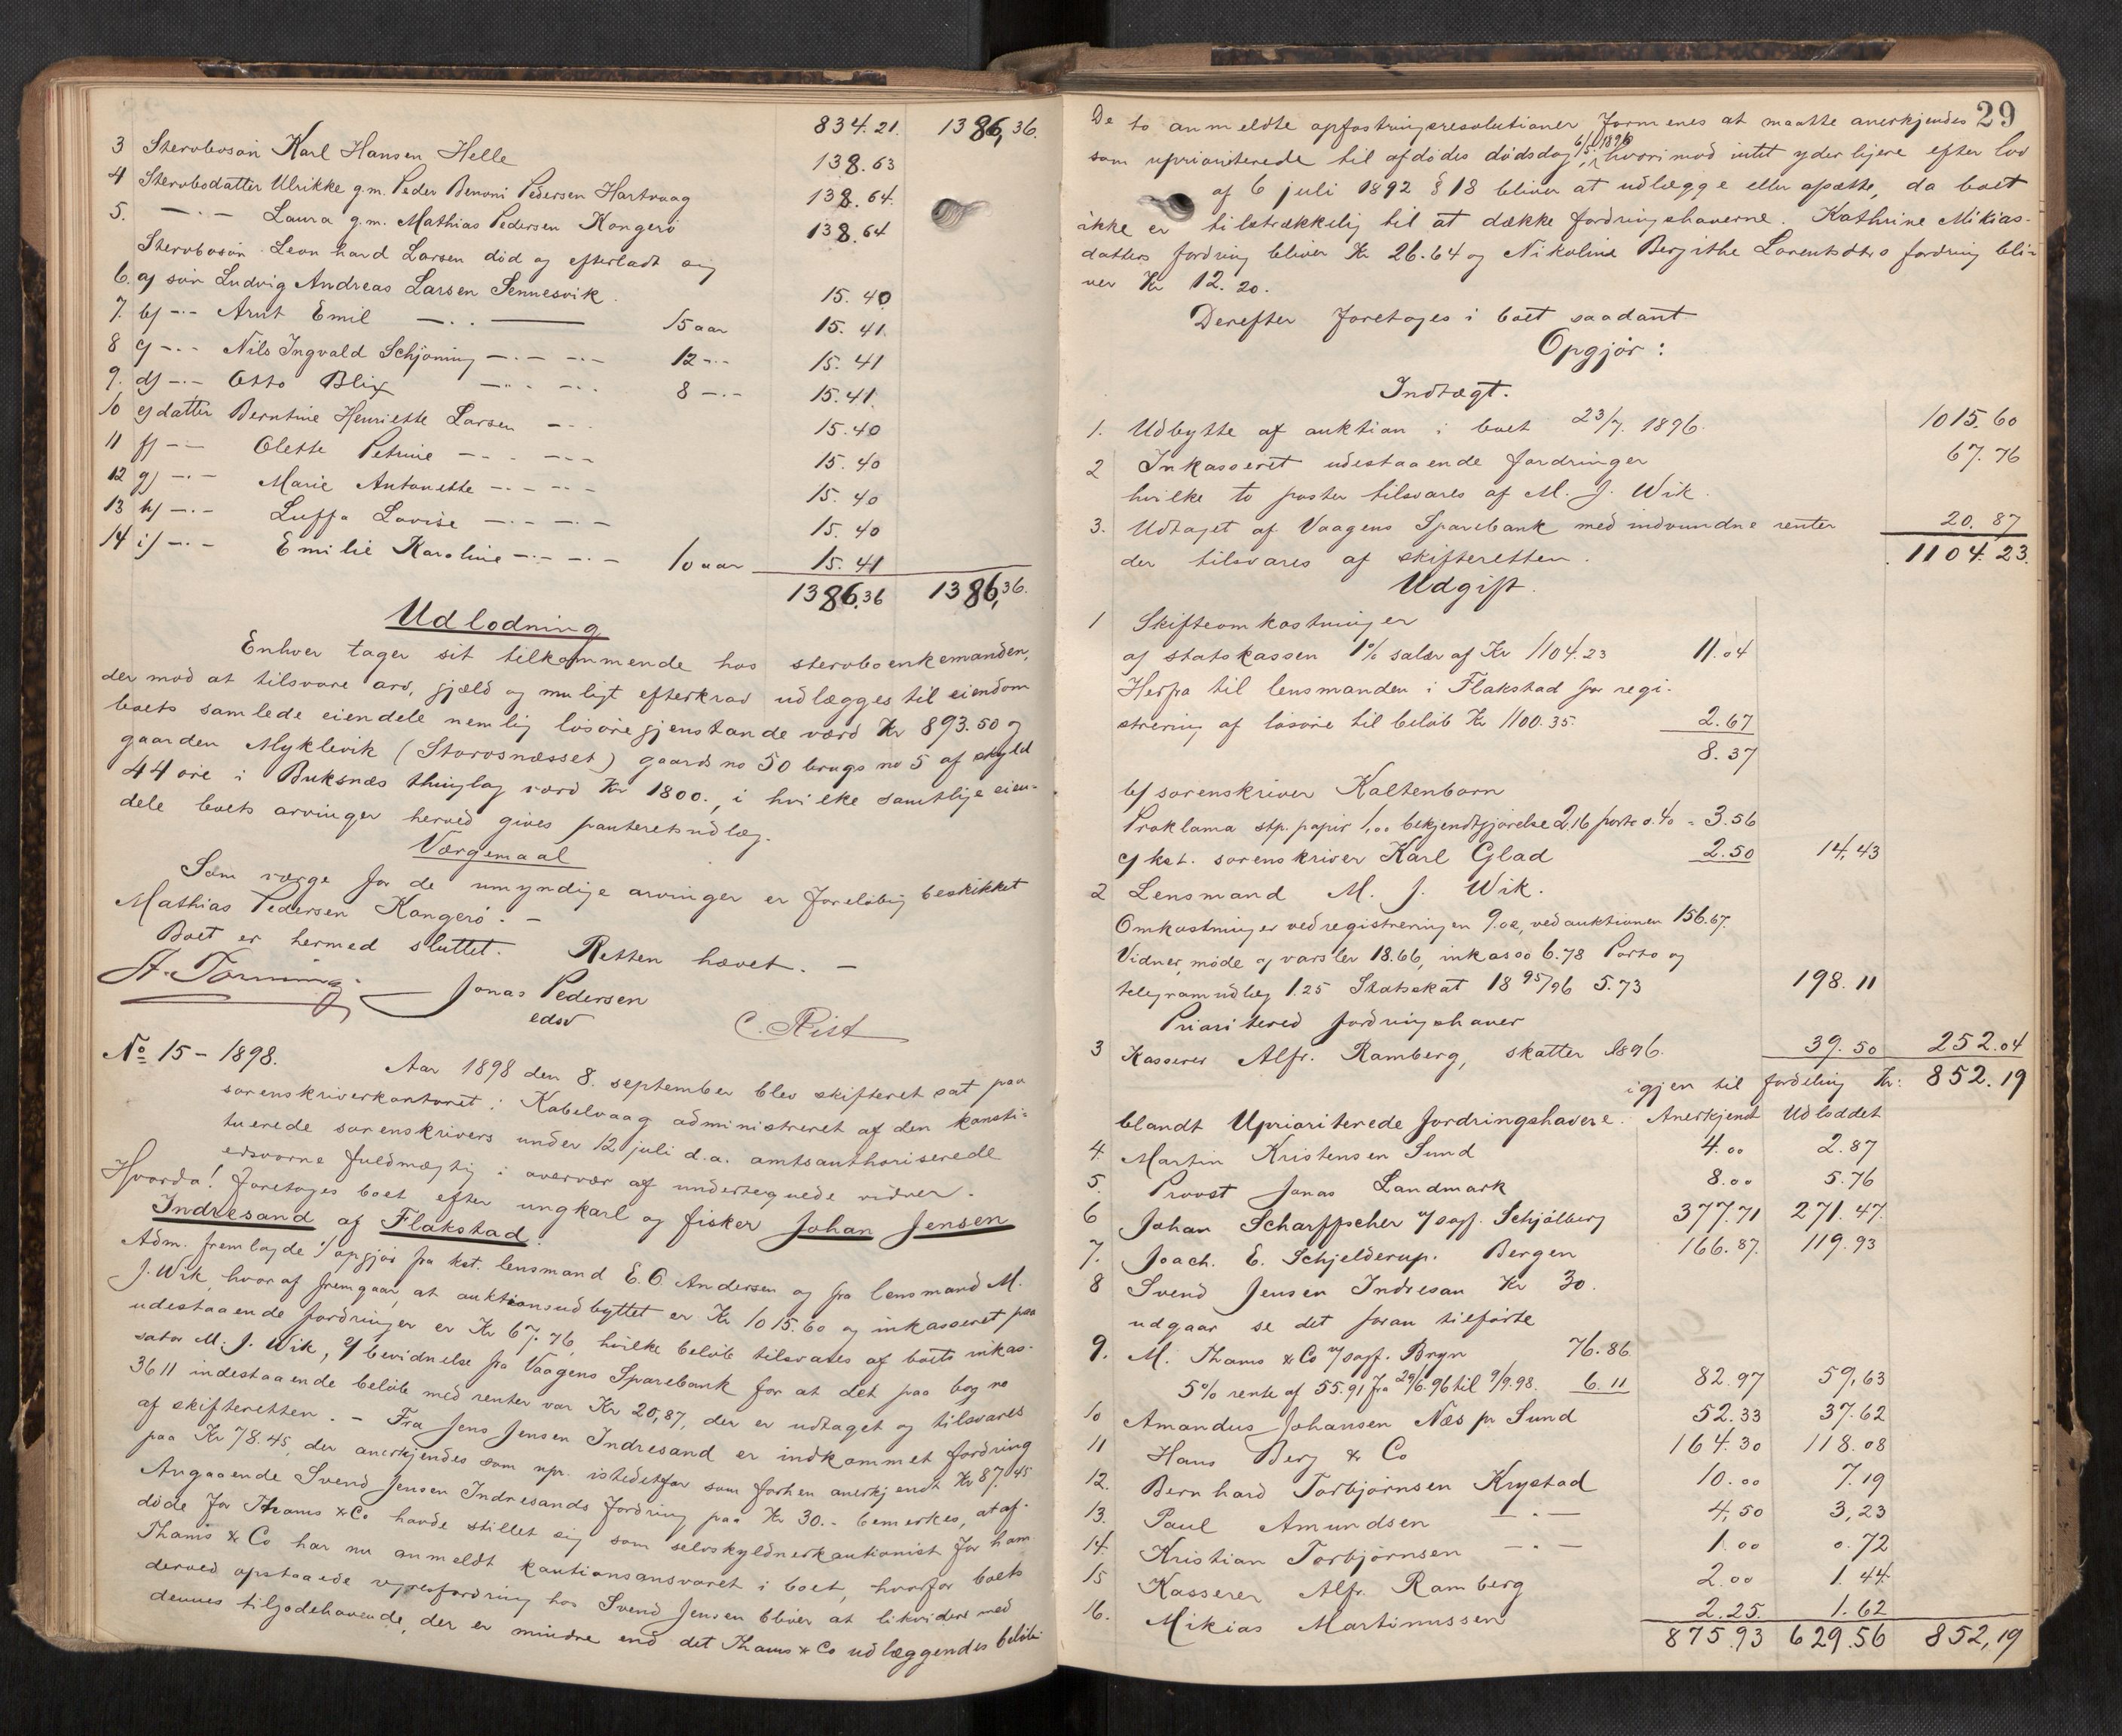 834.21. 1386,36.
3 Stervbosön Karl Hansen Helle 138.63
4 Stervbodatter Ulrikke g.m. Peder Benoni Pedersen Hartvaag 138.64.
5. —·— Laura g.m. Mathias Pedersen Kongerö 138.64
Stervbosön Leonhard Larsen död og efterladt sig
6. a) sön Ludvig Andreas Larsen Sennesvik. 15.40
7. b) —·— Arnt Emil —··— 15 aar 15.41.
8 c) —·— Nils Ingvald Schjöning —·— —·— 12 —·— 15.41
9. d) —·— Otto Blix —·— —·— 8 —·— 15.41.
10 e) datter Berntine Henriette Larsen —·— 15.40
11 f) —·— Olette Petrine —·— —·— 15.40
12 g) —·— Marie Antonette —·— —·— 15.40
13 h) —·— Luffa Lovise —·— —·— 15.40
14 i) —·— Emilie Karoline —·— —·— 10 aar 15.41
1386.36 1386,36.
Udlodning
Enhver tager sit tilkommende hos stervboenkemanden,
der mod at tilsvare arv, gjæld og muligt efterkrav udlægges til eiendom
boets samlede eiendele nemlig lösöregjenstande værd Kr 893.50 og
gaarden Myklevik (Storosnæsset) gaards no 50 brugs no 5 af skyld
44 öre i Buksnæs thinglag værd Kr 1800., i hvilke samtlige eien-
dele boets arvinger herved gives panteretsudlæg.
Værgemaal
Som værge for de umyndige arvinger er foreløbig beskikket
Mathias Pedersen Kangerö. —
Boet er hermed sluttet. Retten hævet. —
Jonas Pedersen
edsv
C. Rist
No 15 - 1898.
Aar 1898 den 8. september blev skifteret sat paa
sorenskriverkontoret i Kabelvaag administreret af den konsti-
tuerede sorenskrivers under 12 juli d.a. amtsauthoriserede
edsvorne fuldmægtig i overvær af undertegnede vidner.
Hvorda! foretoges boet efter ungkarl og fisker Johan Jensen
Indresand af Flakstad.
Adm. fremlagde 1) opgjör fra kst. lensmand E. O. Andersen og fra lensmand M.
J. Wik, hvoraf fremgaar, at auktionsudbyttet er Kr 1015.60 og inkasseret paa
udestaaende fordringer er Kr 67.76, hvilke beløb tilsvares af boets inkas-
sator M. J. Wik, 2) bevidnelse fra Vaagens Sparebank for at det paa bog no
3611 indestaaende beløb med renter var Kr 20,87, der er udtaget og tilsvares
af skifteretten. — Fra Jens Jensen Indresand er indkommet fordring
paa Kr 78.45, der anerkjendes som upr. istedetfor som forhen anerkjendt Kr 87.45
Angaaende Svend Jensen Indresands fordring paa Kr 30.- bemerkes, at af-
döde for Thams & Co havde stillet sig som selvskyldnerkautionist for ham
Thams & Co har nu anmeldt kautionsansvaret i boet, hvorfor boets
derved opstaaede regresfordring hos Svend Jensen bliver at likvidere med
dennes tilgodehavende, der er mindre end det Thams & Co udlæggendes beløb.
29
De to anmeldte opfostringsresolutioner formenes at maatte anerkjendes
som uprioriterede til afdödes dödsdag 6/5 1896, hvorimod intet yderligere efter lov
af 6 juli 1892 § 18 bliver at udlægge eller afsætte, da boet
ikke er tilstrækkelig til at dække fordringshaverne. Kathrine Mikias-
datters fordring bliver Kr 26.64 og Nikoline Bergithe Lorentsdtrs fordring bli-
ver Kr 12.20.
Derefter foretoges i boet saadant
Opgjör:
Indtægt.
1. Udbytte af auktion i boet 23/7. 1896. 1015.60
2 Inkasseret udestaaende fordringer 67.76
hvilke to poster tilsvares af M. J. Wik.
3. Udtaget af Vaagens Sparebank med indvundne renter 20.87
der tilsvares af skifteretten. 1104.23.
Udgift.
1 Skifteomkostninger
a) statskassen 1% salær af Kr 1104.23 11.04
Herfra til lensmanden i Flakstad for regi-
strering af lösöre til beløb Kr 1100.35. 2.67
8.37
b) sorenskriver Kaltenborn
Proklama stp. papir 1,00 bekjendtgjörelse 2,16 porto 0.40 = 3.56
c) kst. sorenskriver Karl Glad 2.50 14,43
2 Lensmand M. J. Wik.
Omkostninger ved registreringen 9.02, ved auktionen 156.67.
Vidner, möde og varsler 18.66, inkasso 6.78 Porto og
telegramudlæg 1.25 Statsskat 1895/96 5.73 198.11
Prioritered fordringshaver
3 Kasserer Alfr. Ramberg, skatter 1896. 39.50 252.04
igjen til fordeling Kr: 852.19
blandt Uprioriterede fordringshavere. Anerkjendt Udloddet
4. Martin Kristensen Sund 4.00 2.87
5. Provst Jonas Landmark 8.00 5.76
6 Johan Scharffscher v/ sagf. Schjölberg 377.71 271.47.
7. Joach. E. Schjelderup. Bergen 166.87. 119.93
8 Svend Jensen Indresan Kr 30.
udgaar se det foran tilförte
9. M. Thams & Co v/ sagf. Bryn 76.86
5% rente af 55.91 fra 29/6.96 til 9/9.98. 6.11 82.97 59,63
10 Amandus Johansen Næs pr Sund 52.33 37.62
11 Hans Berg & Co 164.30 118.08
12. Bernhard Torbjörnsen Krystad 10.00 7.19
13. Paul Amundsen —·— 4,50 3,23
14. Kristian Torbjörnsen —·— 1.00 0.72
15 Kasserer Alfr. Ramberg 2.00 1.44
16. Mikias Martinussen 2.25. 1.62
875.93 629.56 852,19